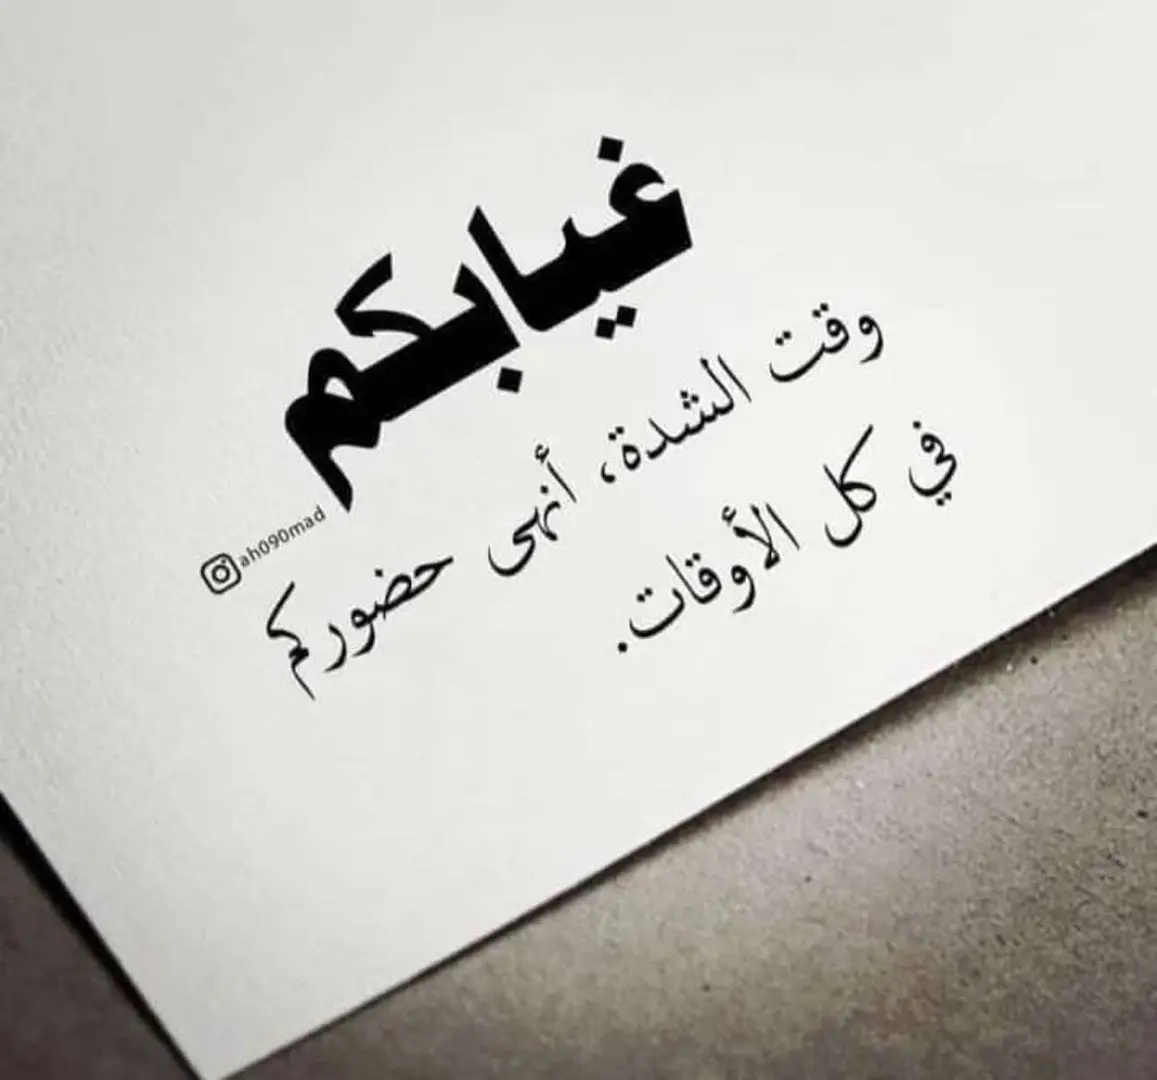 غيابكم
وقت الشدة، أنهى حضوركم
في كل الأوقات.
ah090mad